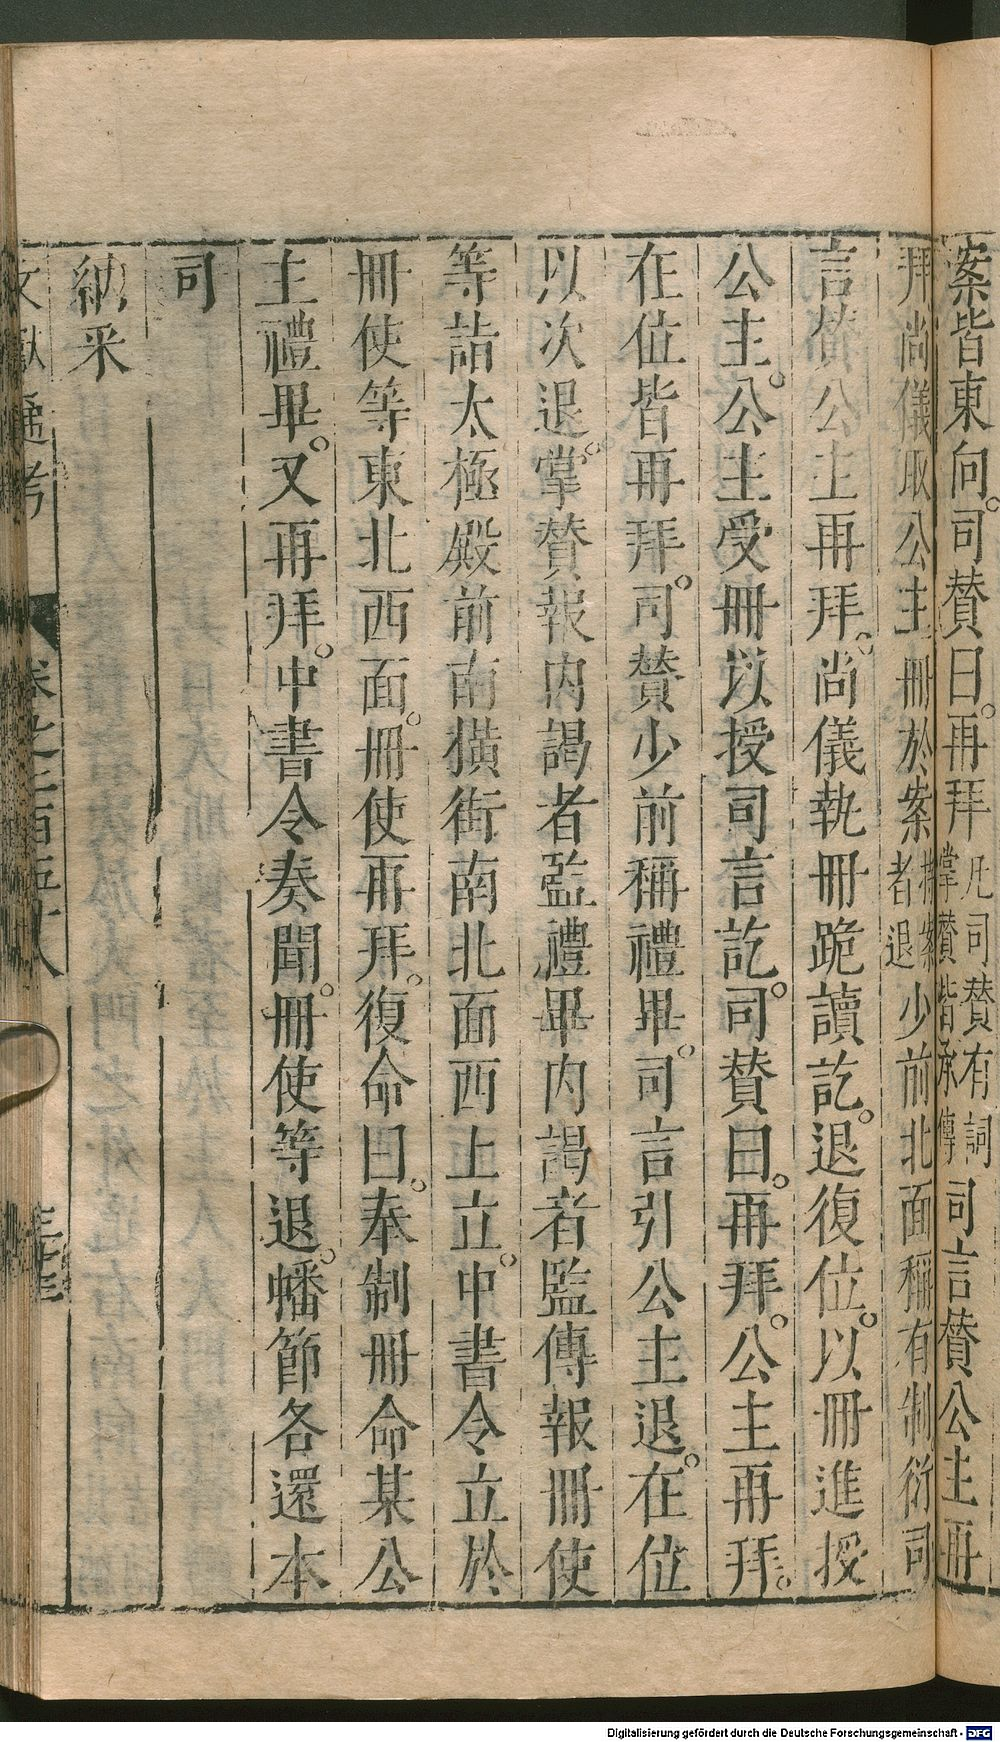 案皆東向。司贊曰。再拜凡司贊有詞掌贊皆承傳司言贊公主再
拜尚儀取公主冊於案持案者退少前北面稱有制衍司
言贊公主再拜。尚儀執冊跪讀訖。退復位。以冊進授
公主。公主受冊以授司言訖。司贊曰。再拜。公主再拜。
在位皆再拜。司贊少前稱禮畢。司言引公主退。在位
以次退。掌贊報内謁者監禮畢内謁者監傳報冊使
等詣太極殿前南橫街南北面西上立。中書令立於
冊使等東北西面。冊使再拜。復命曰。奉制冊命某公
主禮畢。又再拜。中書令奏聞。冊使等退。幡節各還本
司
納采
文獻通考 卷之二百五十八
Digitalisierung gefördert durch die Deutsche Forschungsgemeinschaft - DFG